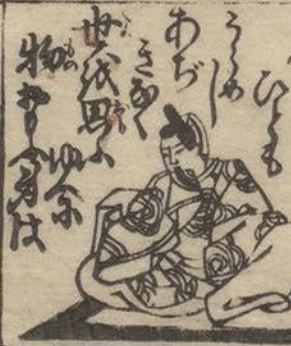 ひとも
うらめし
あぢ
きなく
世を思ふ
ゆゑに
物おもふ身は